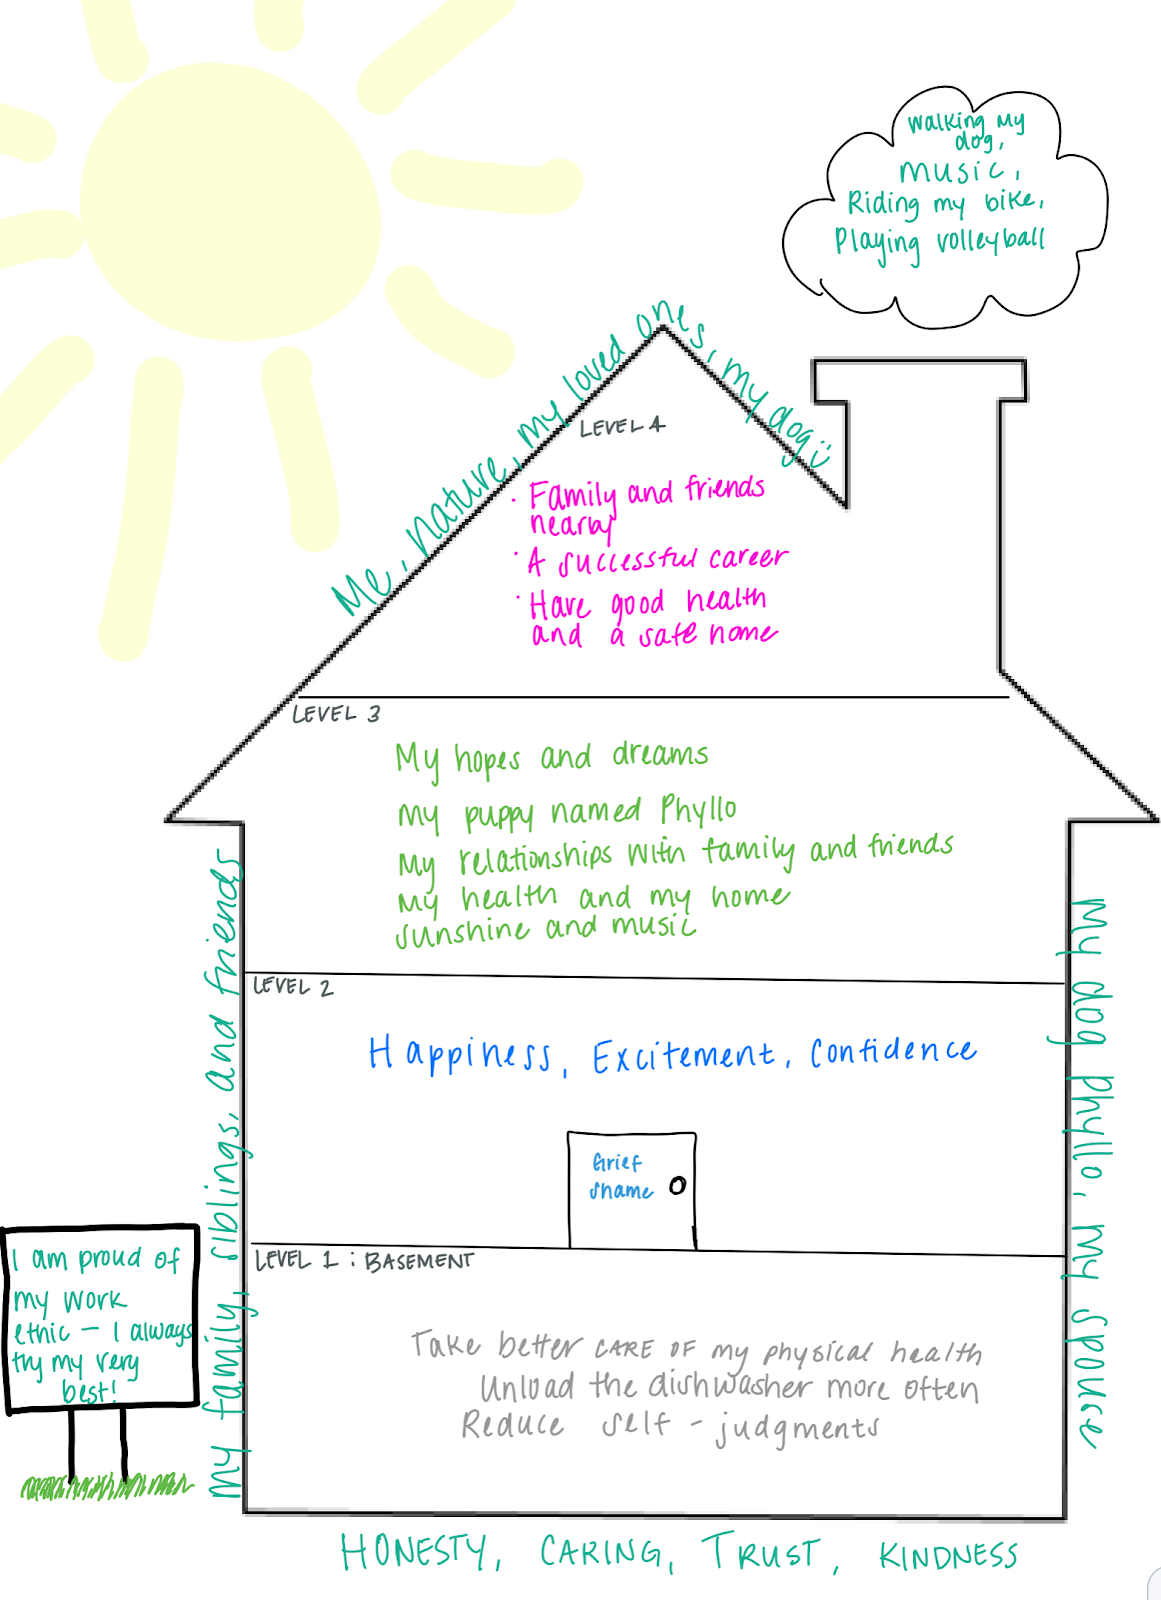 Walking my
dog,
music,
Riding my bike,
Playing volleyball
Me, nature, my loved ones, my dog :)
LEVEL 4
· Family and friends
nearby
· A successful career
· Have good health
and a safe home
LEVEL 3
My hopes and dreams
My puppy named Phyllo
My relationships with family and friends
My health and my home
sunshine and music
LEVEL 2
Happiness, Excitement, Confidence
Grief
shame
my family, siblings, and friends
My dog phyllo, my spouse
I am proud of
my work
ethic – I always
try my very
best!
LEVEL 1 : BASEMENT
Take better CARE OF my physical health
Unload the dishwasher more often
Reduce self - judgments
HONESTY, CARING, TRUST, KINDNESS